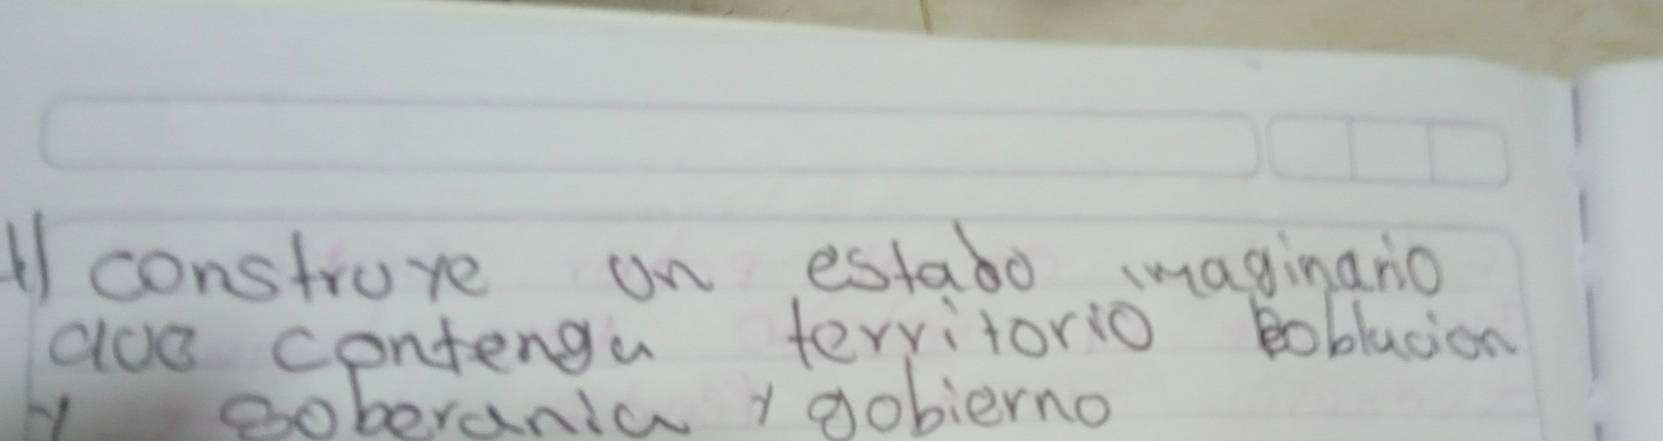 4) construye un estado imaginario
que contenga territorio Poblacion
y soberania y gobierno